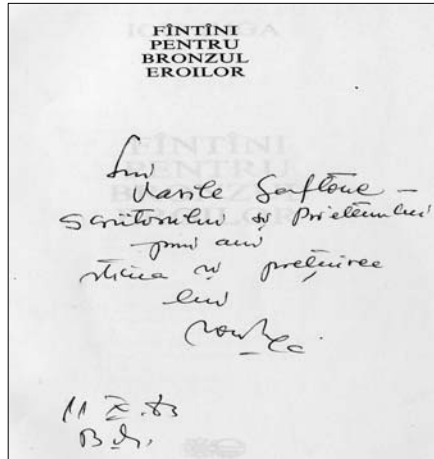 FÎNTÎNI
PENTRU
BRONZUL
EROILOR
Lui
Vasile Gaftone –
scriitorului și Prietenului
prin ani
stima și prețuirea
lui
11 X. 83
B.M.